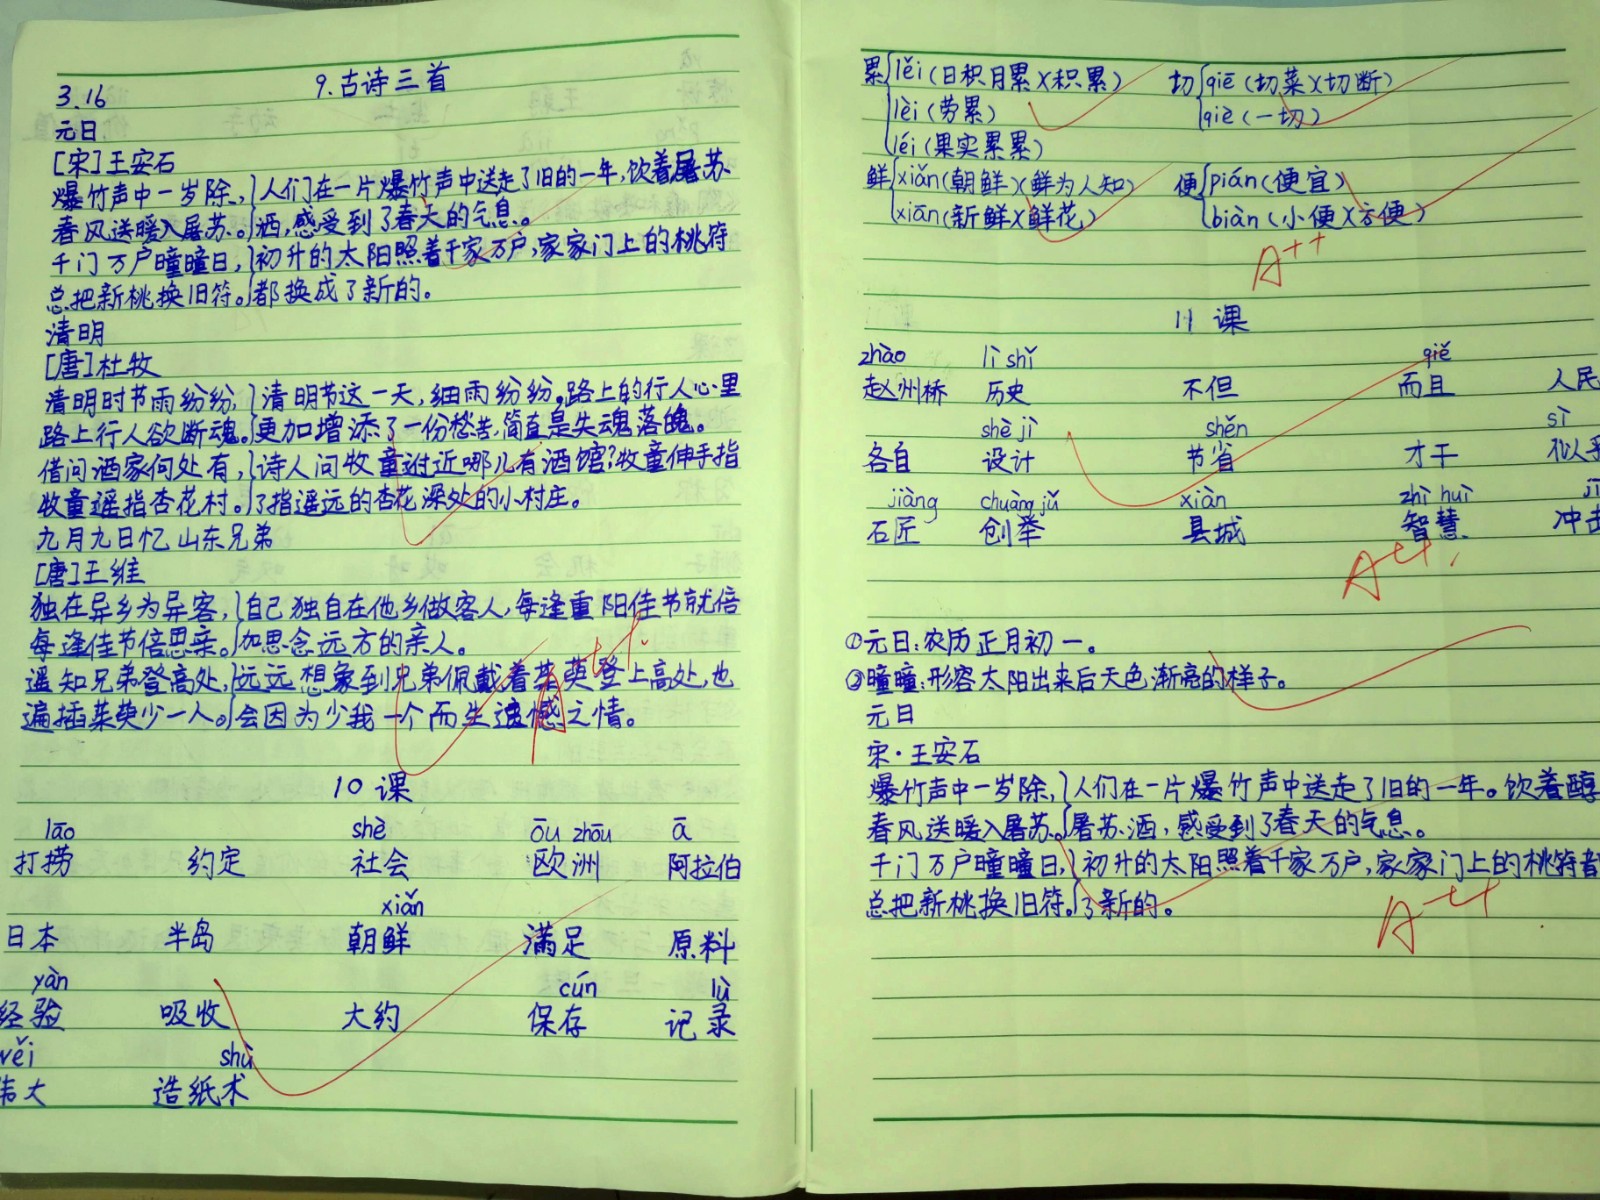 3.16
9.古诗三首
元日
[宋]王安石
爆竹声中一岁除,人们在一片爆竹声中送走了旧的一年,饮着屠苏
春风送暖入屠苏。酒,感受到了春天的气息。
千门万户曈曈日,初升的太阳照着千家万户,家家门上的桃符
总把新桃换旧符。都换成了新的。
清明
[唐]杜牧
清明时节雨纷纷,清明节这一天,细雨纷纷。路上的行人心里
路上行人欲断魂。更加增添了一份愁苦,简直是失魂落魄。
借问酒家何处有,诗人问牧童附近哪儿有酒馆?牧童伸手指
牧童遥指杏花村。了指遥远的杏花深处的小村庄。
九月九日忆山东兄弟
[唐]王维
独在异乡为异客,自己独自在他乡做客人,每逢重阳佳节就倍
每逢佳节倍思亲。加思念远方的亲人。
遥知兄弟登高处,远远想象到兄弟佩戴着茱萸登上高处,也
遍插茱萸少一人。会因为少我一个而生遗憾之情。
A++
10课
lāo shè ōu zhōu ā
打捞 约定 社会 欧洲 阿拉伯
xiǎn
日本 半岛 朝鲜 满足 原料
yàn cún lù
经验 吸收 大约 保存 记录
wěi shù
伟大 造纸术
累 lěi(日积月累)(积累) 切 qiē(切菜)(切断)
lèi(劳累) qiè(一切)
léi(果实累累)
鲜 xiǎn(朝鲜)(鲜为人知) 便 pián(便宜)
xiān(新鲜)(鲜花) biàn(小便)(方便)
A++
11课
zhào lì shǐ qiě
赵州桥 历史 不但 而且 人民
shè jì shěng sì
各自 设计 节省 才干 似乎
jiàng chuàng jǔ xiàn zhì huì jī
石匠 创举 县城 智慧 冲击
A++
①元日:农历正月初一。
②曈曈:形容太阳出来后天色渐亮的样子。
元日
宋·王安石
爆竹声中一岁除,人们在一片爆竹声中送走了旧的一年。饮着醇
春风送暖入屠苏。屠苏酒,感受到了春天的气息。
千门万户曈曈日,初升的太阳照着千家万户,家家门上的桃符都
总把新桃换旧符。了新的。
A++